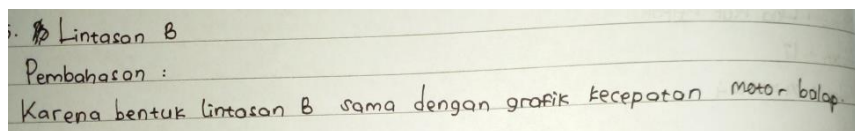 . Lintasan B
Pembahasan :
Karena bentuk lintasan B sama dengan grafik kecepatan motor balap.